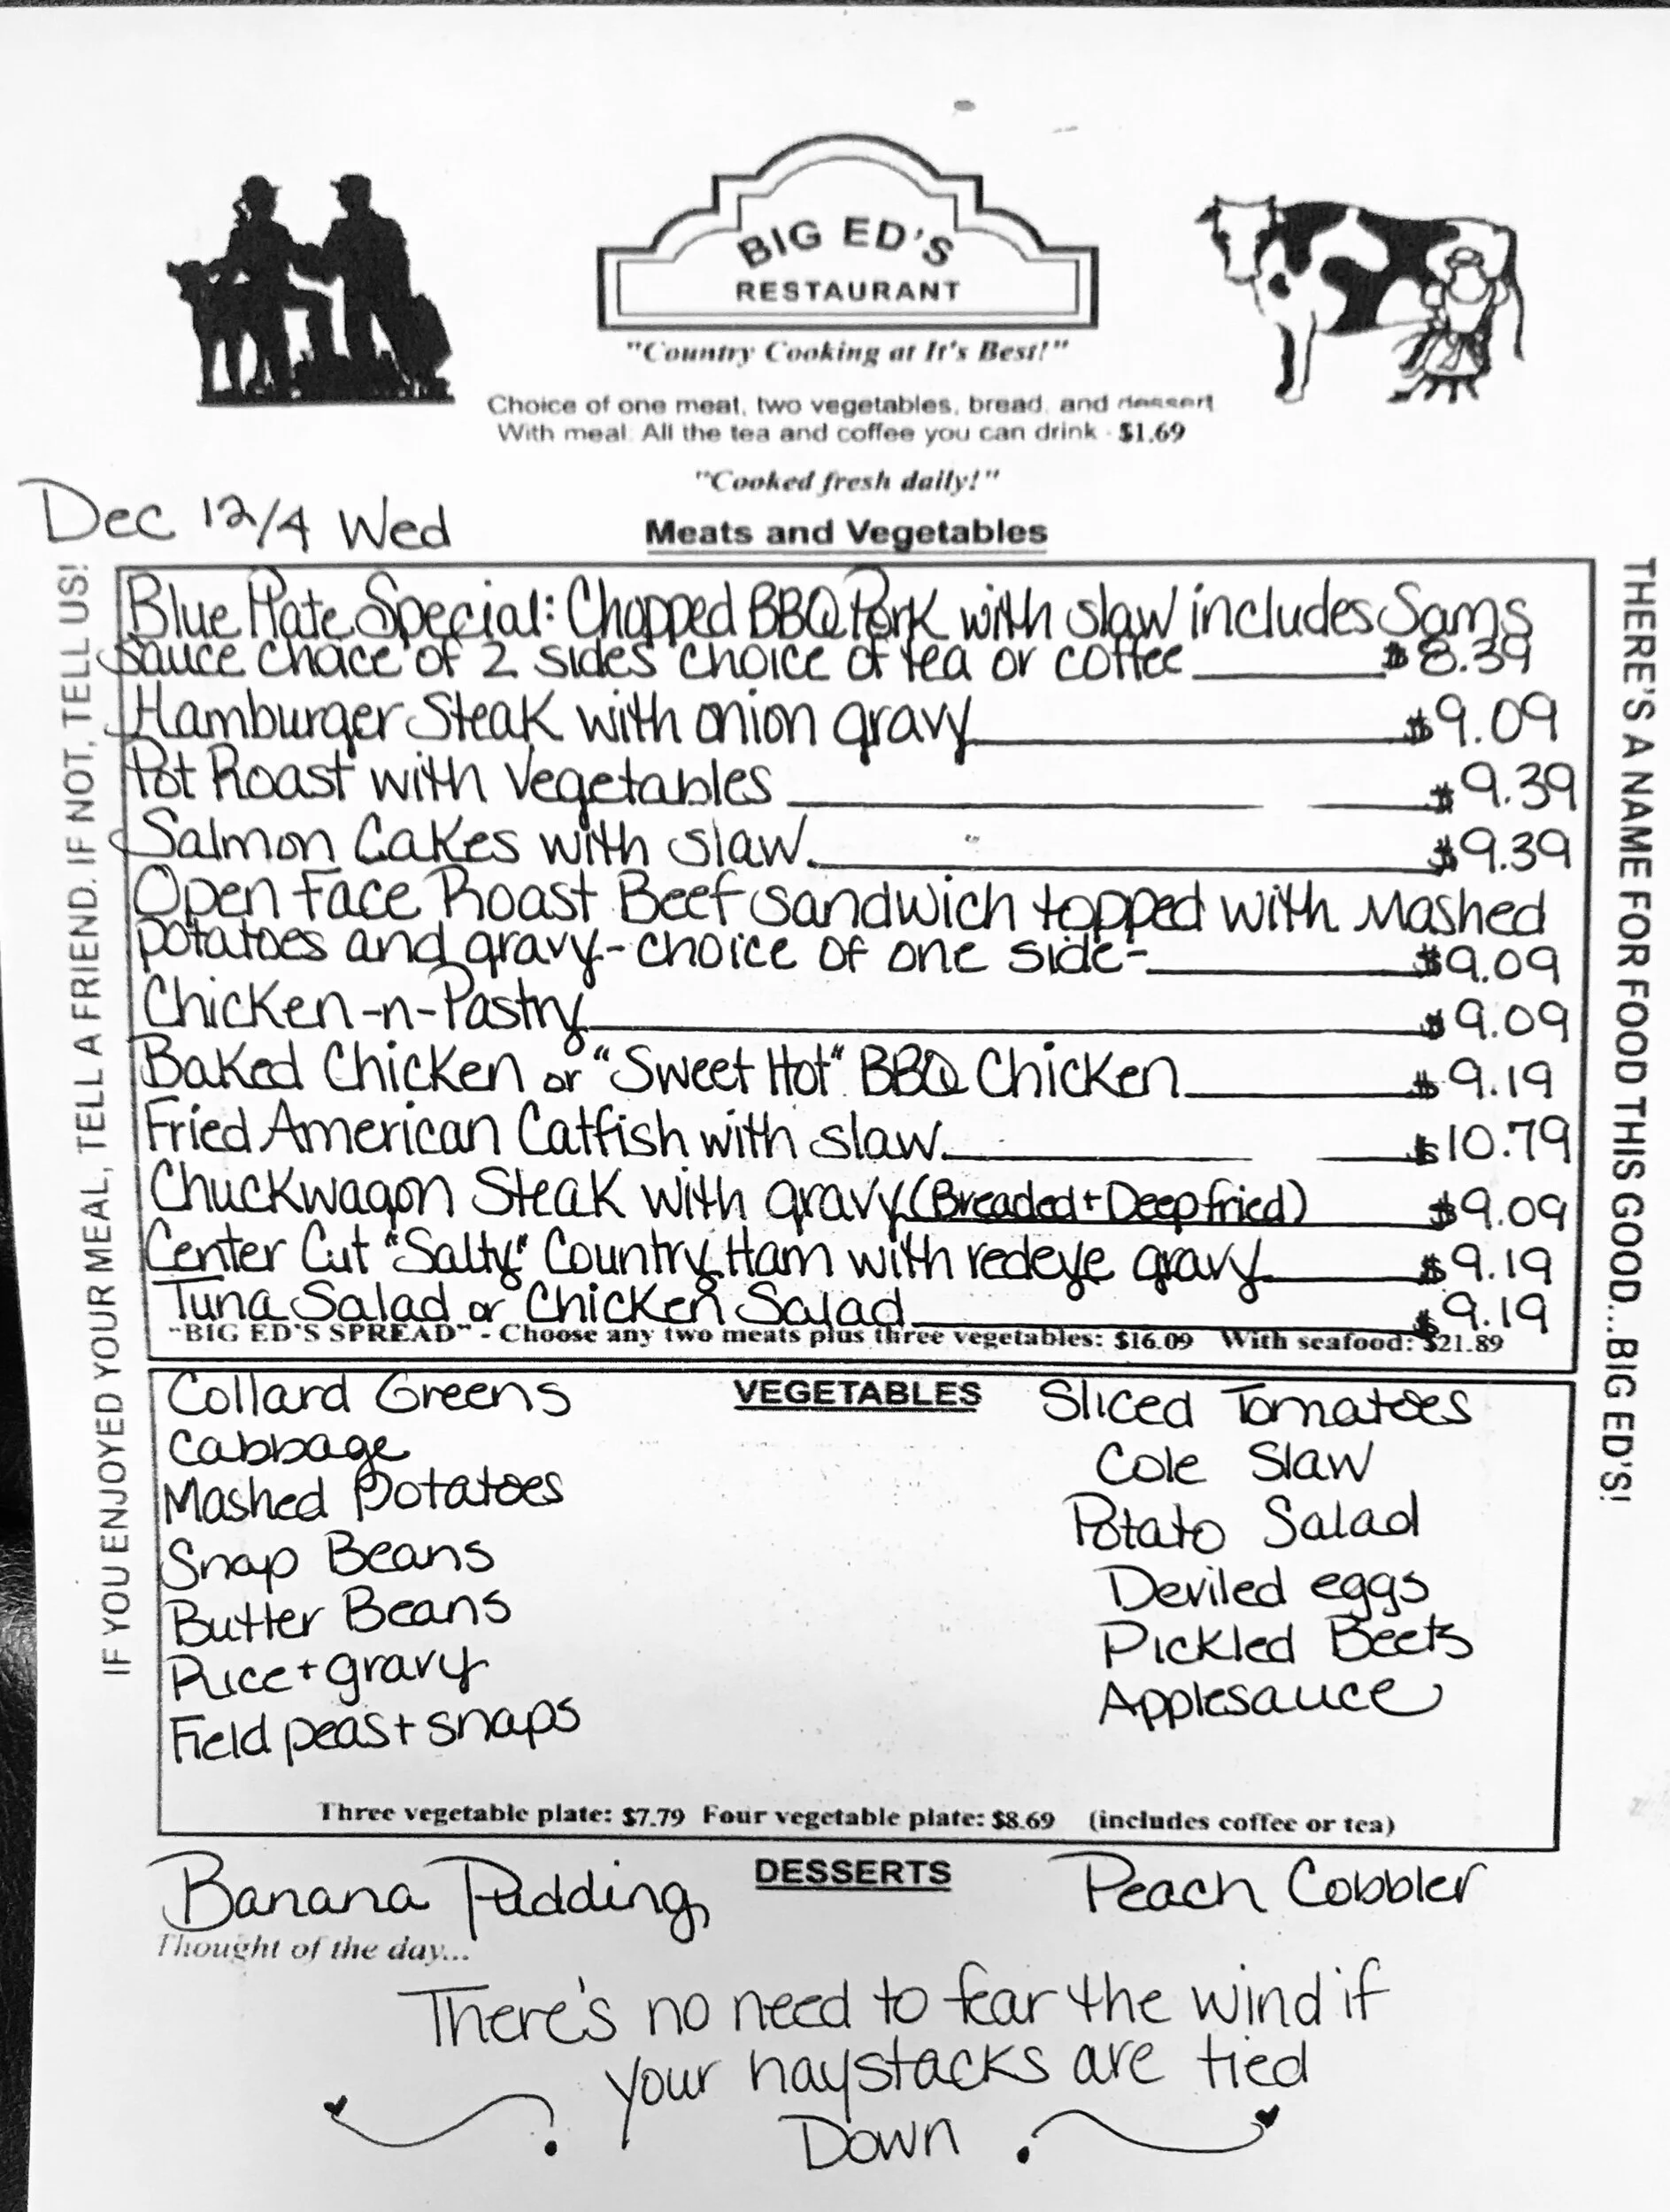 BIG ED'S
RESTAURANT
"Country Cooking at It's Best!"
Choice of one meat, two vegetables, bread, and dessert
With meal: All the tea and coffee you can drink - $1.69
"Cooked fresh daily!"
Dec 12/4 Wed
Meats and Vegetables
IF YOU ENJOYED YOUR MEAL, TELL A FRIEND. IF NOT, TELL US!
Blue Plate Special: Chopped BBQ Pork with slaw includes Sams
sauce choice of 2 sides choice of tea or coffee $8.39
Hamburger Steak with onion gravy $9.09
Pot Roast with Vegetables $9.39
Salmon Cakes with slaw $9.39
Open Face Roast Beef sandwich topped with Mashed
potatoes and gravy-choice of one side- $9.09
Chicken-n-Pastry $9.09
Baked Chicken or "Sweet Hot" BBQ Chicken $9.19
Fried American Catfish with slaw $10.79
Chuckwagon Steak with gravy (Breaded + Deep fried) $9.09
Center Cut "Salty" Country Ham with redeye gravy $9.19
Tuna Salad or Chicken Salad $9.19
"BIG ED'S SPREAD" - Choose any two meats plus three vegetables: $16.09 With seafood: $21.89
THERE'S A NAME FOR FOOD THIS GOOD...BIG ED'S!
VEGETABLES
Collard Greens
Cabbage
Mashed Potatoes
Snap Beans
Butter Beans
Rice + gravy
Field peas + snaps
Sliced Tomatoes
Cole Slaw
Potato Salad
Deviled eggs
Pickled Beets
Applesauce
Three vegetable plate: $7.79 Four vegetable plate: $8.69 (includes coffee or tea)
DESSERTS
Banana Pudding
Peach Cobbler
Thought of the day...
There's no need to fear the wind if
your haystacks are tied
Down